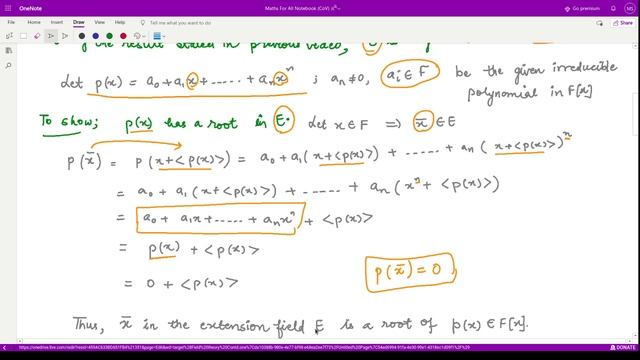 OneNote
Maths For All Notebook (CoV)
MS
File Home Insert Draw View Help Tell me what you want to do
Go premium
the result stated in previous video, E is
Let p(x) = a₀ + a₁x + ..... + aₙxⁿ ; aₙ ≠ 0, aᵢ ∈ F be the given irreducible
polynomial in F[x]
To show; p(x) has a root in E. Let x ∈ F ⟹ x̄ ∈ E
p(x̄) = p(x+<p(x)>) = a₀ + a₁(x+<p(x)>) + ..... + aₙ(x+<p(x)>)ⁿ
= a₀ + a₁(x+<p(x)>) + ..... + aₙ(xⁿ + <p(x)>)
= a₀ + a₁x + ..... + aₙxⁿ + <p(x)>
= p(x) + <p(x)>
= 0 + <p(x)>
p(x̄) = 0
Thus, x̄ in the extension field E is a root of p(x) ∈ F[x].